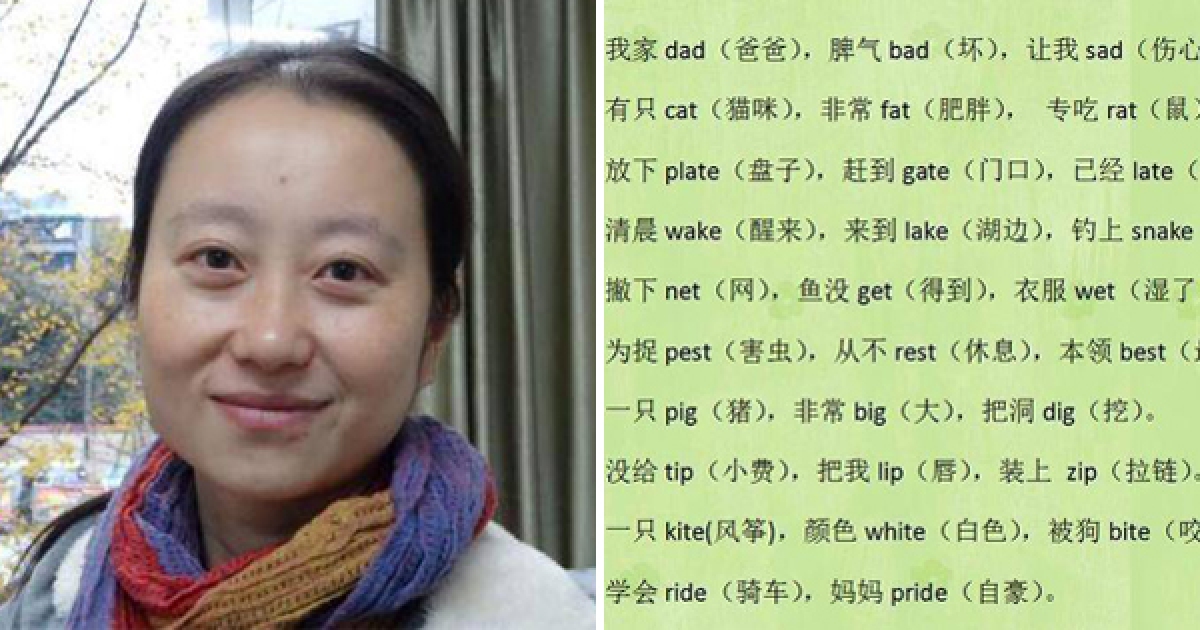 我家 dad（爸爸），脾气 bad（坏），让我 sad（伤心
有只 cat（猫咪），非常 fat（肥胖）， 专吃 rat（鼠）
放下 plate（盘子），赶到 gate（门口），已经 late（
清晨 wake（醒来），来到 lake（湖边），钓上 snake
撇下 net（网），鱼没 get（得到），衣服 wet（湿了
为捉 pest（害虫），从不 rest（休息），本领 best（
一只 pig（猪），非常 big（大），把洞 dig（挖）。
没给 tip（小费），把我 lip（唇），装上 zip（拉链）。
一只 kite(风筝)，颜色 white（白色），被狗 bite（咬
学会 ride（骑车），妈妈 pride（自豪）。